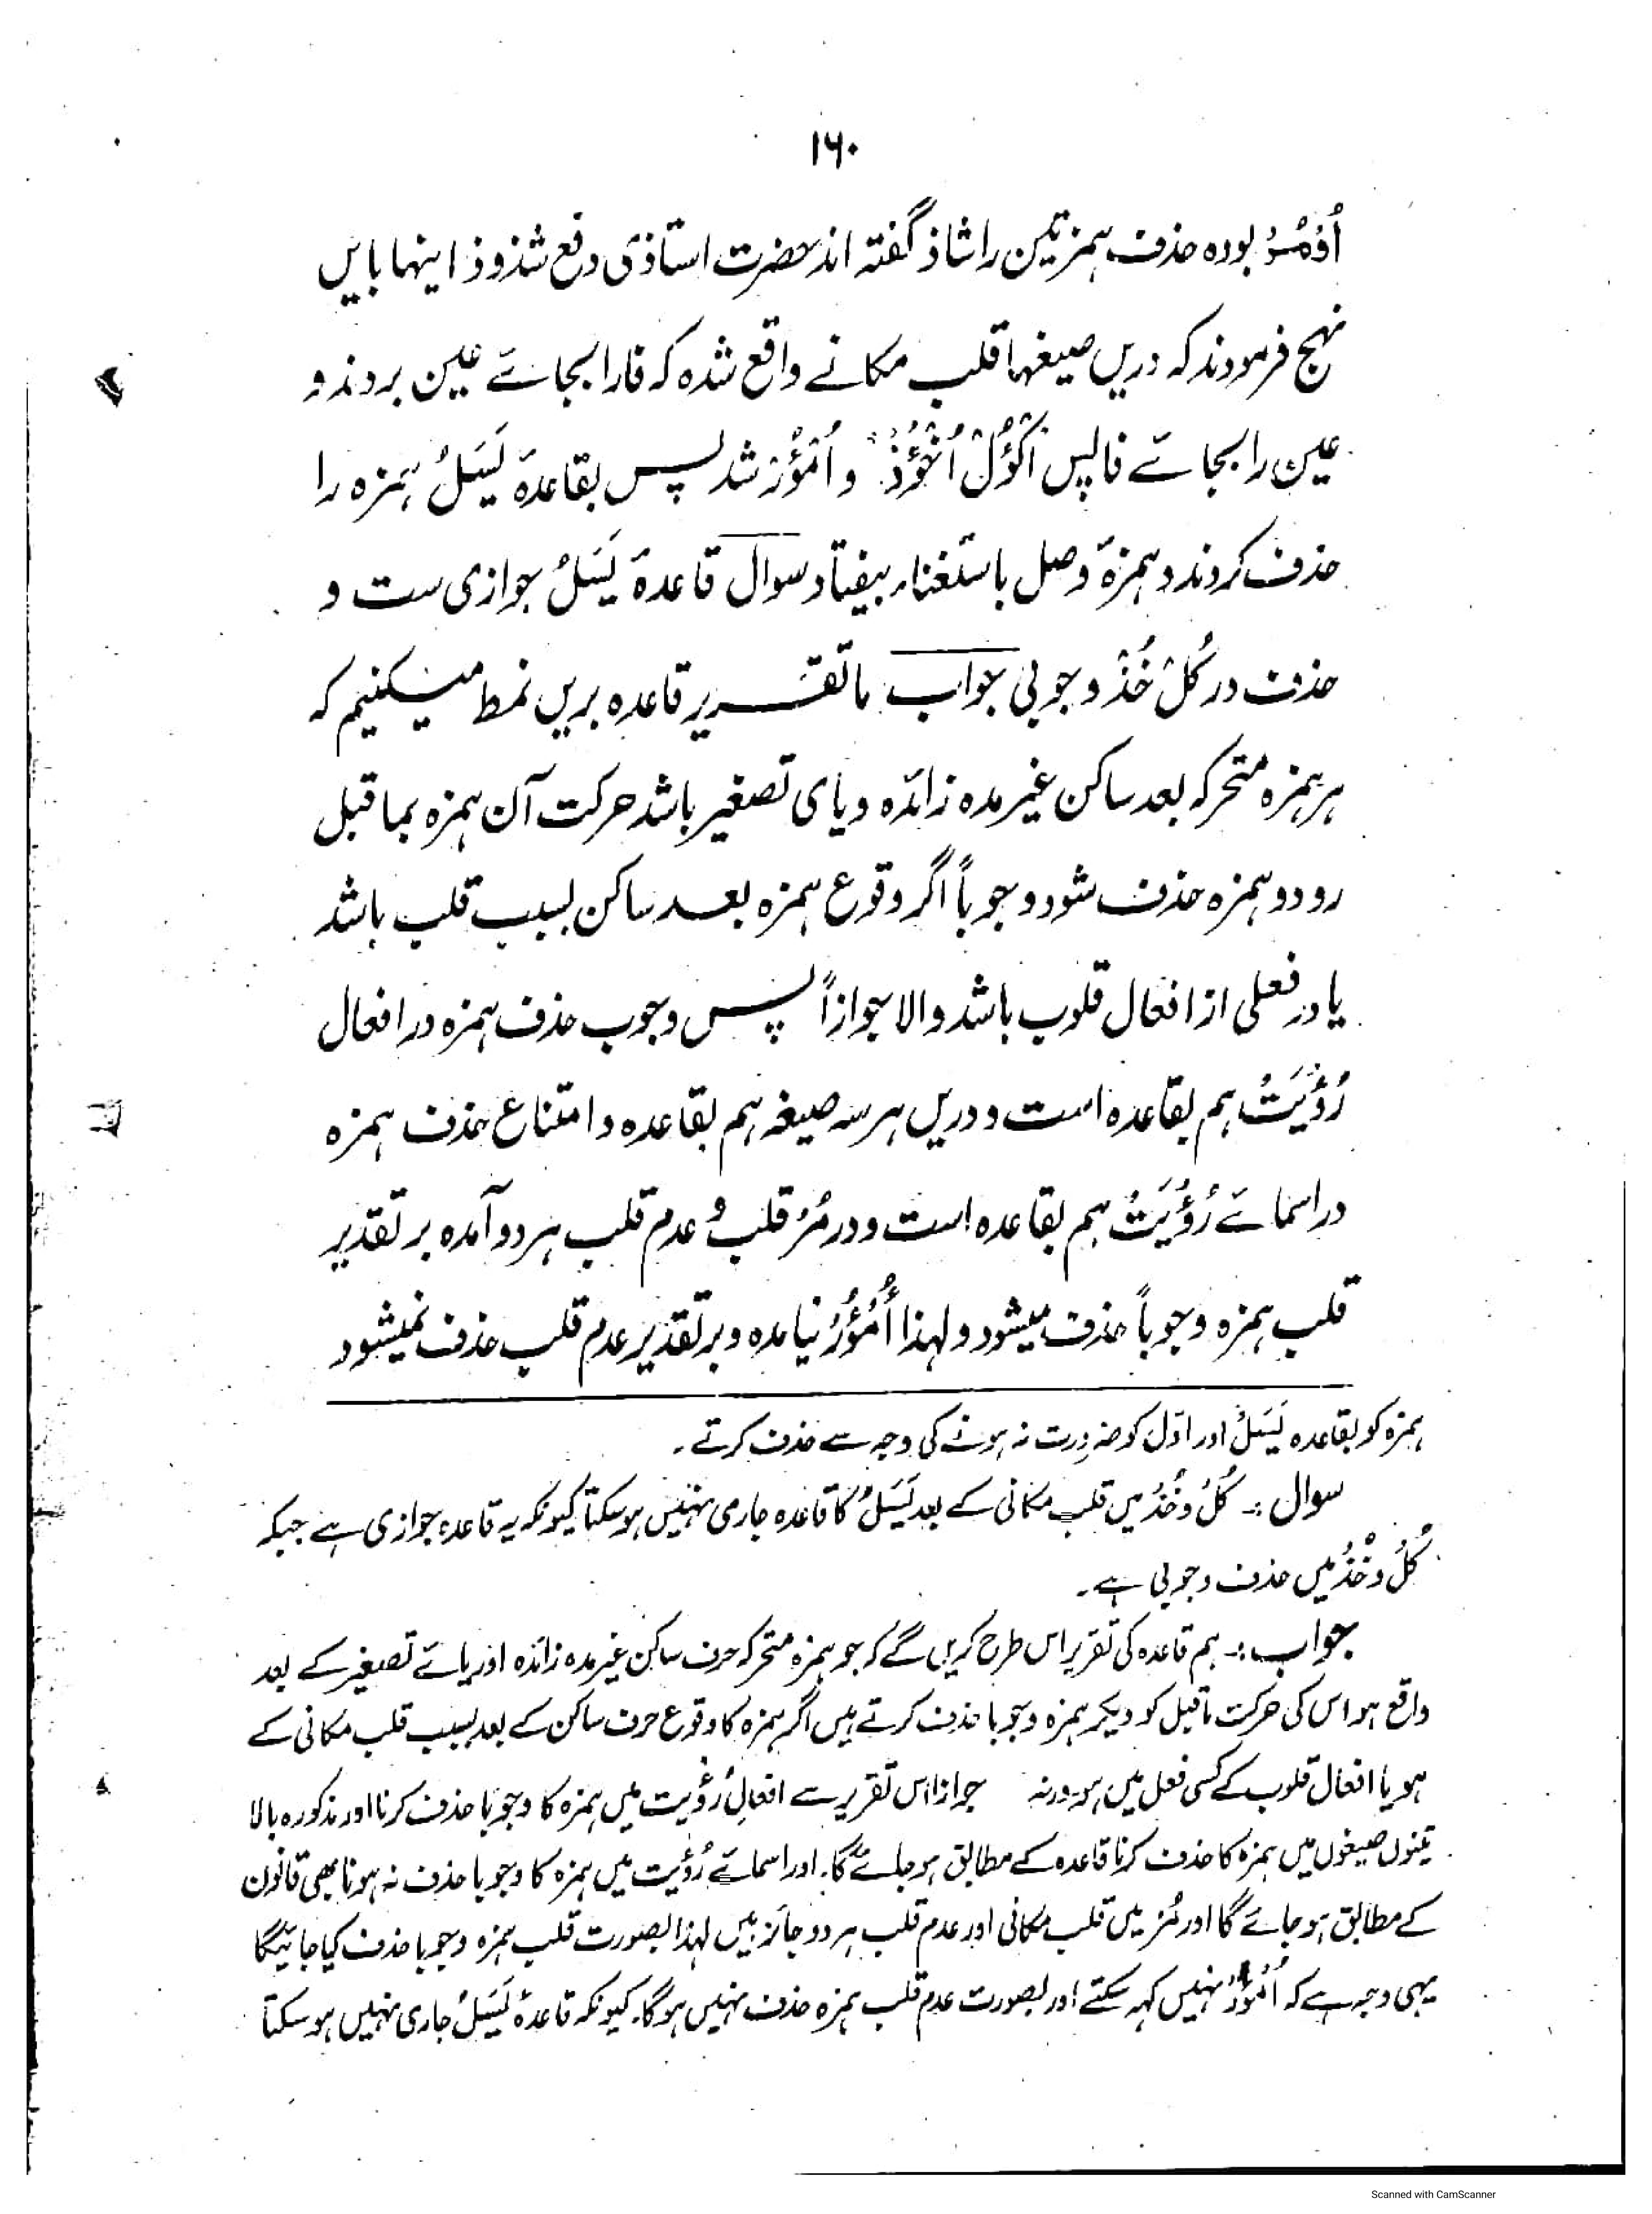 ۱۶۰
اُؤْمُرْ بوده حذف ہمزتین را شاذ گفتہ اند حضرت استاذی دفع شذوذ اینہا بایں
نہج فرمودند کہ دریں صیغہا قلب مکانے واقع شدہ کہ فا را بجائے عین بردند و
عین را بجائے فا پس اُكْؤُلْ اُخْؤُذْ و اُمْؤُرْ شد پس بقاعدۂ يَسَلُ ہمزہ را
حذف کردند و ہمزۂ وصل باستغناء بیفتاد سوال قاعدۂ يَسَلُ جوازی ست و
حذف در كُلْ خُذْ وجوبی جواب ما تقریر قاعدہ بریں نمط میکنیم کہ
ہر ہمزہ متحرکہ بعد ساکن غیر مدہ زائدہ و یای تصغیر باشد حرکت آن ہمزہ بما قبل
رود و ہمزہ حذف شود وجوباً اگر وقوع ہمزہ بعد ساکن بسبب قلب باشد
یا در فعلی از افعال قلوب باشد والا جوازاً پس وجوب حذف ہمزہ در افعال
رُؤْيَتْ ہم بقاعدہ است و دریں ہر سہ صیغہ ہم بقاعدہ و امتناع حذف ہمزہ
در اسمائے رُؤْيَتْ ہم بقاعدہ است و در مُرْ قلب و عدم قلب ہر دو آمدہ بر تقدیر
قلب ہمزہ وجوباً حذف میشود و لہذا اُمْؤُرْ نیامدہ و بر تقدیر عدم قلب حذف نمیشود
ہمزہ کو بقاعدہ يَسَلُ اور اوّل کو ضرورت نہ ہونے کی وجہ سے حذف کرتے۔
سوال :۔ كُلْ و خُذْ میں قلب مکانی کے بعد يَسَلُ کا قاعدہ جاری نہیں ہو سکتا کیونکہ یہ قاعدہ جوازی ہے جبکہ
كُلْ و خُذْ میں حذف وجوبی ہے۔
جواب :۔ ہم قاعدہ کی تقریر اس طرح کریں گے کہ جو ہمزہ متحرکہ حرف ساکن غیر مدہ زائدہ اور یائے تصغیر کے بعد
واقع ہو اس کی حرکت ماقبل کو دیکر ہمزہ وجوبا حذف کرتے ہیں اگر ہمزہ کا وقوع حرف ساکن کے بعد بسبب قلب مکانی کے
ہو یا افعال قلوب کے کسی فعل میں ہو ورنہ جوازا اس تقریر سے افعالِ رُؤیت میں ہمزہ کا وجوبا حذف کرنا اور مذکورہ بالا
تینوں صیغوں میں ہمزہ کا حذف کرنا قاعدہ کے مطابق ہو جائے گا۔ اور اسمائے رُؤیت میں ہمزہ کا وجوبا حذف نہ ہونا بھی قانون
کے مطابق ہو جائے گا اور مُرْ میں قلب مکانی اور عدم قلب ہر دو جائز ہیں لہذا بصورت قلب ہمزہ وجوبا حذف کیا جائیگا
یہی وجہ ہے کہ اُمْؤُرْ نہیں کہہ سکتے اور بصورت عدم قلب ہمزہ حذف نہیں ہوگا۔ کیونکہ قاعدۂ يَسَلُ جاری نہیں ہو سکتا
Scanned with CamScanner